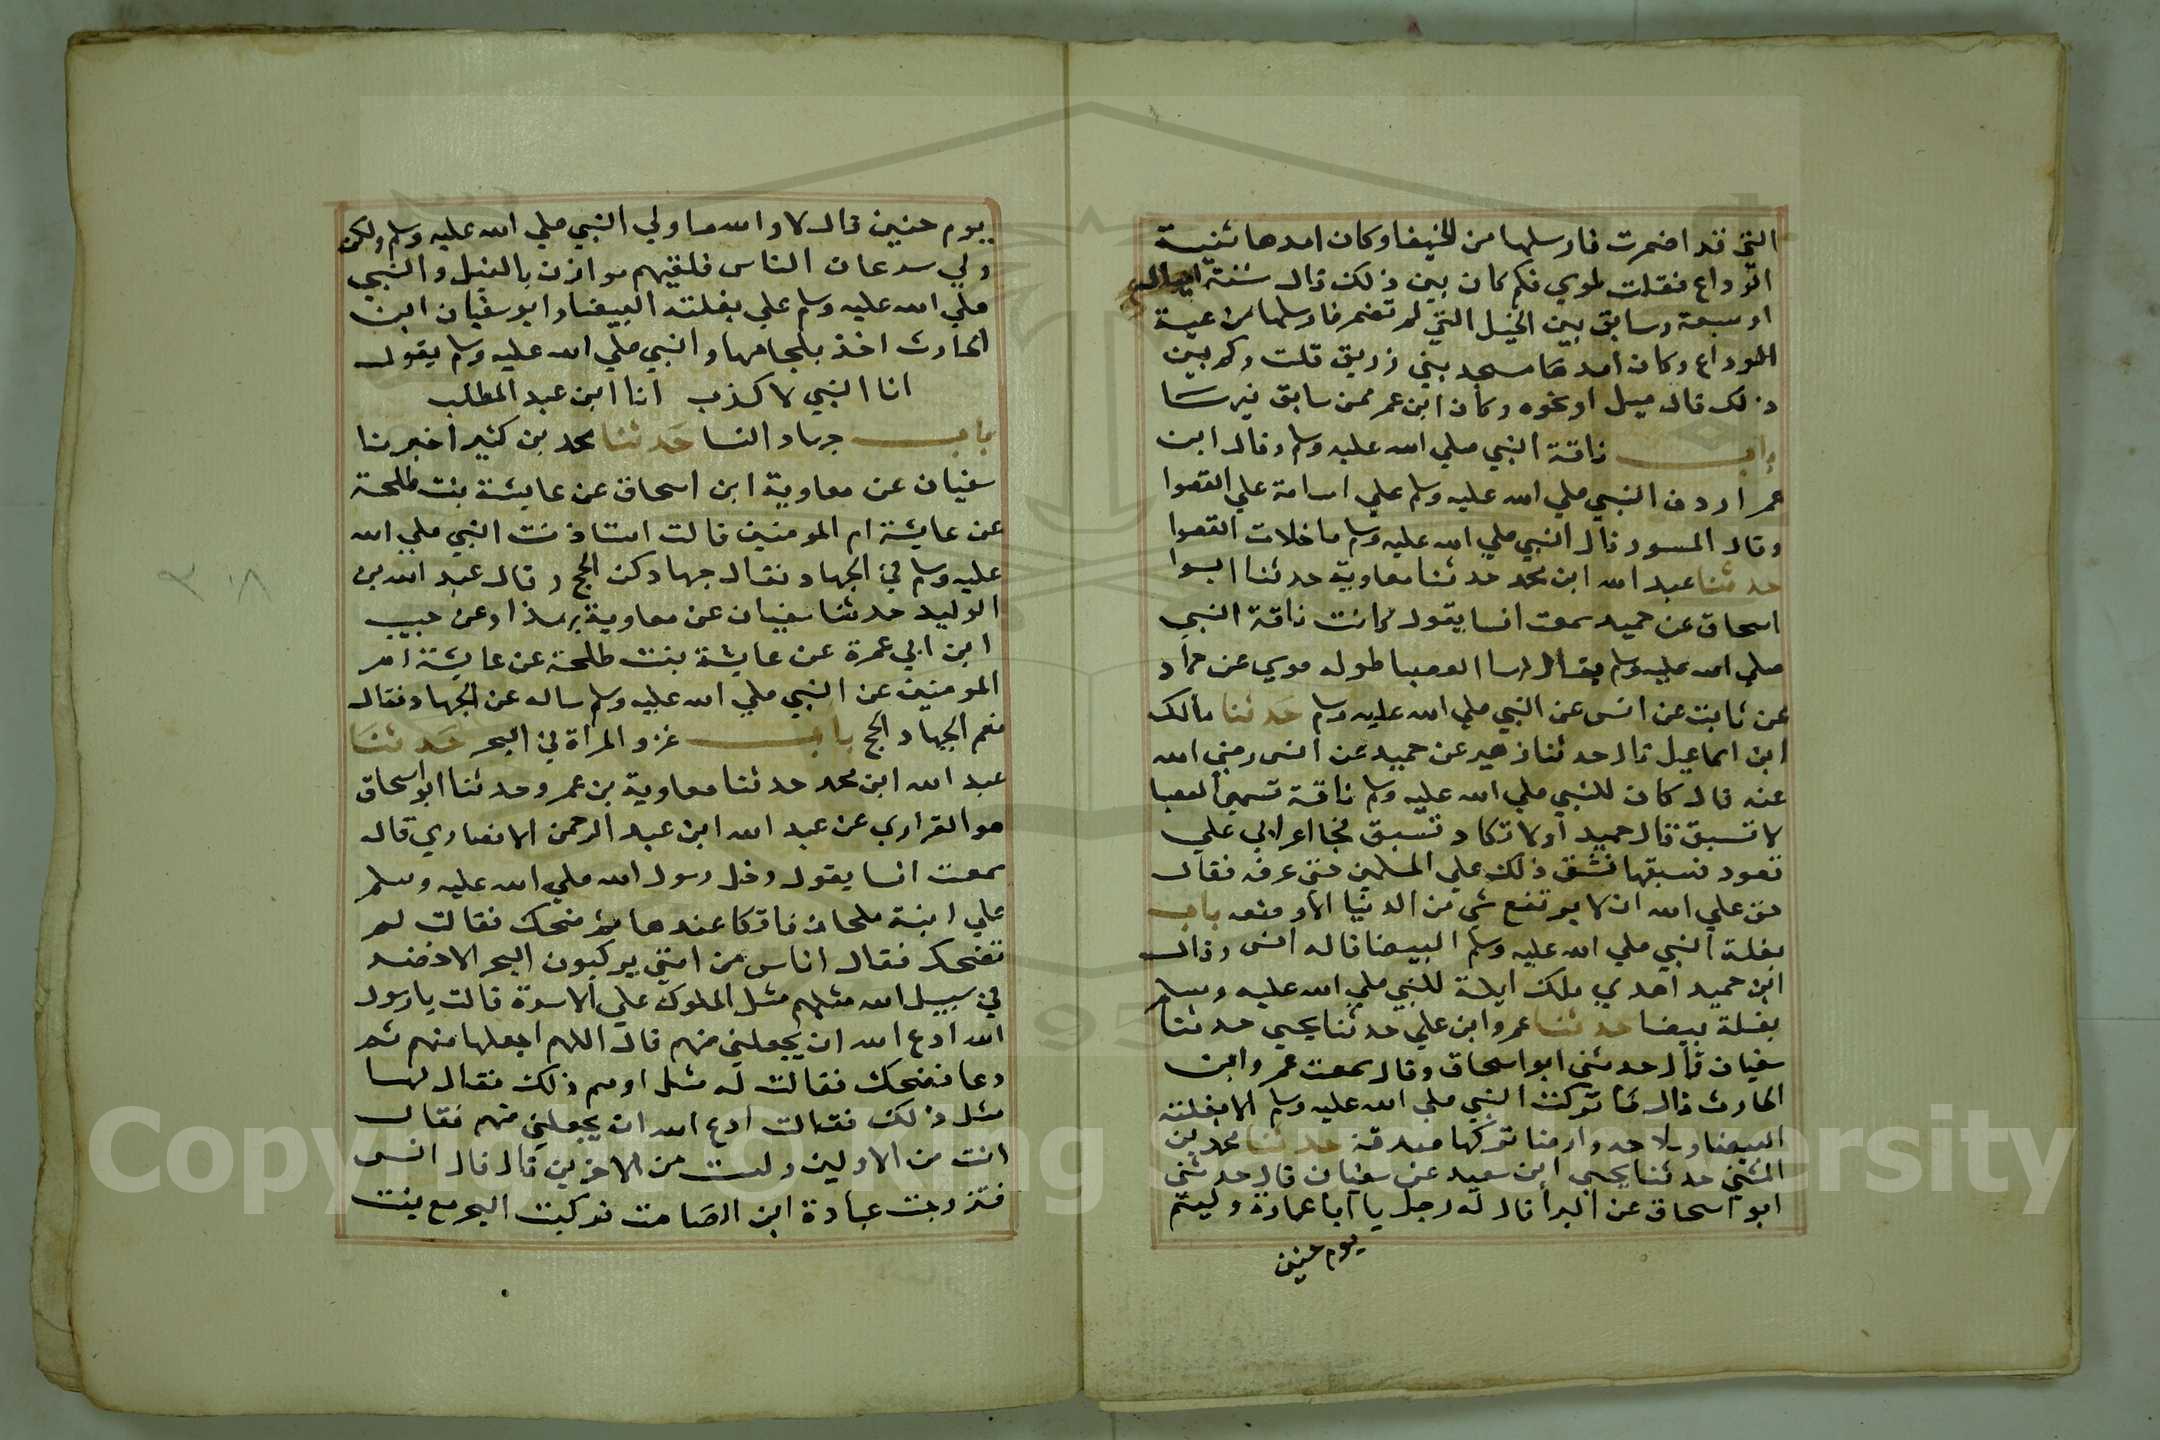 التي قد اضمرت فارسلها من الحيفا وكان امدها ثنية
الوداع فقلت لموي فكم كان بين ذلك قال ستة اميال
او سبعة وسابق بين الخيل التي لم تضمر فارسلها من عية
الوداع وكان امدها مسجد بني زريق قلت وكم بين
ذلك قال ميل او نحوه وكان ابن عمر ممن سابق فيها
باب ناقة النبي صلي الله عليه وسلم وقال ابن
عمر اردف النبي صلي الله عليه وسلم علي اسامة علي القصوا
وقال المسور قال النبي صلي الله عليه وسلم ما خلات القصوا
حدثنا عبد الله ابن محمد حدثنا معاوية حدثنا ابوا
اسحاق عن حميد سمعت انسا يقول كانت ناقة النبي
صلي الله عليه وسلم يقال لها العصبا طوله موي عن حماد
عن ثابت عن انس عن النبي صلي الله عليه وسلم حدثنا مالك
ابن اسماعيل قال حدثنا زهير عن حميد عن انس رضي الله
عنه قال كان للنبي صلي الله عليه وسلم ناقة تسمي العصبا
لا تسبق قال حميد أولا تكاد تسبق فجا اعرابي علي
قعود فسبقها فشق ذلك علي المسلمين حتي عرفه فقال
حق علي الله ان لا يرتفع شي من الدنيا الا وضعه باب
بغلة النبي صلي الله عليه وسلم البيضا قاله انس وقال
ابن حميد اهدي ملك ايلة للنبي صلي الله عليه وسلم
بغلة بيضا حدثنا عمرو ابن علي حدثنا يحيي حدثنا
سفيان قال حدثني ابو اسحاق وقال سمعت عمرو ابن
الحارث قال ما تركت النبي صلي الله عليه وسلم الا بغلته
البيضا وسلاحه وارضا تركها صدقة حدثنا محمد بن
المثني حدثنا يحيي ابن سعيد عن سفيان قال حدثني
ابو اسحاق عن البرا قال له رجل يا ابا عمارة وليتم
يوم حنين
يوم حنين قال لا والله ما ولي النبي صلي الله عليه وسلم ولكن
ولي سرعان الناس فلقيهم هوازن بالنبل والنبي
صلي الله عليه وسلم علي بغلته البيضا وابو سفيان ابن
الحارث اخذ بلجامها والنبي صلي الله عليه وسلم يقول
انا النبي لا كذب انا ابن عبد المطلب
باب جهاد النسا حدثنا محمد بن كثير اخبرنا
سفيان عن معاوية ابن اسحاق عن عايشة بنت طلحة
عن عايشة ام المومنين قالت استاذنت النبي صلي الله
عليه وسلم في الجهاد فقال جهادكن الحج وقال عبد الله بن
الوليد حدثنا سفيان عن معاوية بهذا وعن حبيب
ابن ابي عمرة عن عايشة بنت طلحة عن عايشة ام
المومنين عن النبي صلي الله عليه وسلم ساله عن الجهاد فقال
نعم الجهاد الحج باب غزو المراة في البحر حدثنا
عبد الله ابن محمد حدثنا معاوية بن عمر وحدثنا ابو اسحاق
هو الفزاري عن عبد الله ابن عبد الرحمن الانصاري قال
سمعت انسا يقول دخل رسول الله صلي الله عليه وسلم
علي ابنة ملحان فاتكا عندها ثم ضحك فقالت لم
تضحك فقال اناس من امتي يركبون البحر الاخضر
في سبيل الله مثلهم مثل الملوك علي الاسرة قالت يا رسول
الله ادع الله ان يجعلني منهم قال اللهم اجعلها منهم ثم
دعا فضحك فقالت له مثل او مم ذلك فقال لها
مثل ذلك فقالت ادع الله ان يجعلني منهم فقال
انت من الاولين ولست من الاخرين قال قال انس
فتزوجت عبادة ابن الصامت فركبت البحر مع بنت
Copyright © King Saud University